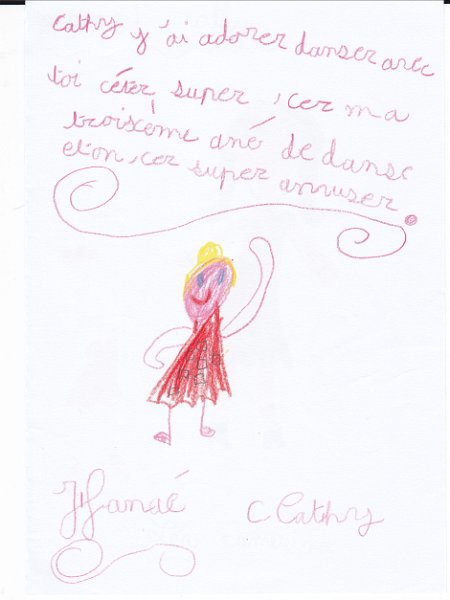 Cathy y'ai adorer danser avec
toi céter super, cer ma
troisème ané de danse
eton, cer super amuser.
C Cathy